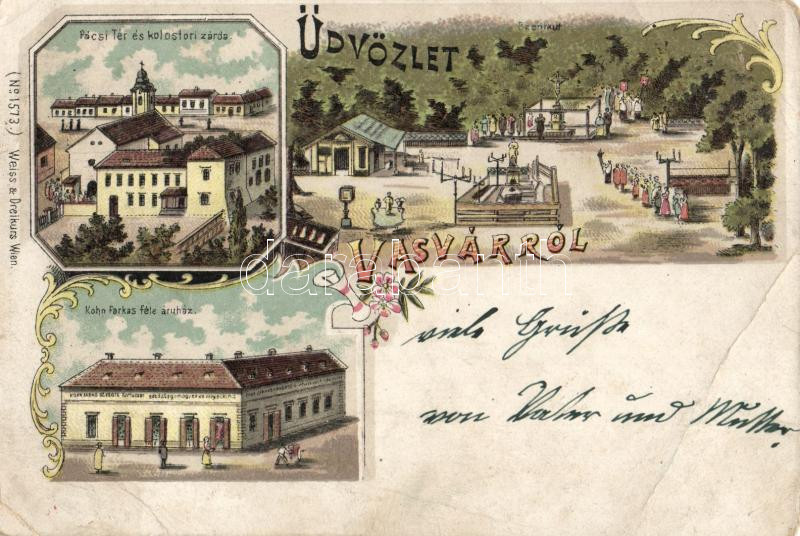 Pácsi Tér és kolostori zárda.
ÜDVÖZLET
Szentkút
VASVÁRRÓL
(No 1573.) Weiss & Dreikurs Wien.
Kohn Farkas féle áruház.
viele Grüße
von Vater und Mutter
darabanth